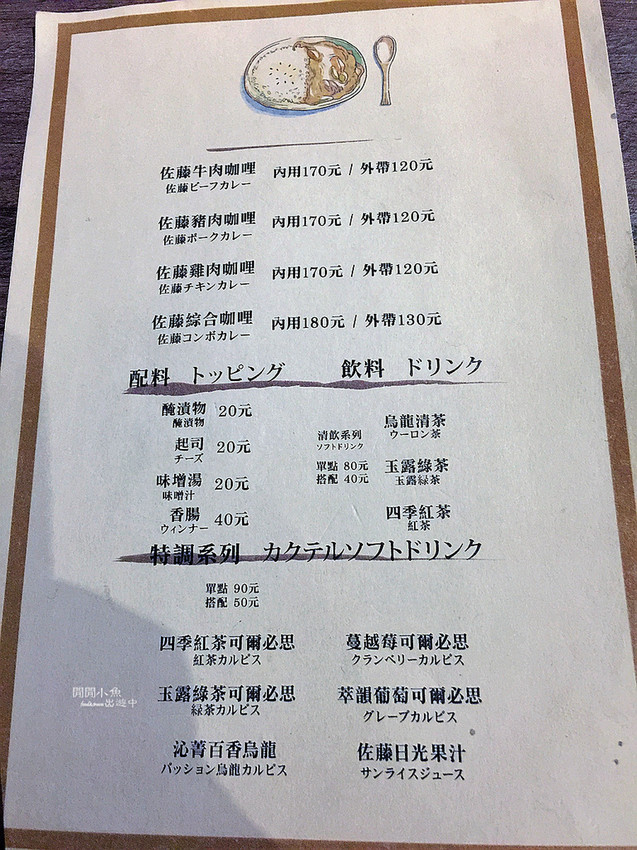 佐藤牛肉咖哩 內用170元 / 外帶120元
佐藤ビーフカレー
佐藤豬肉咖哩 內用170元 / 外帶120元
佐藤ポークカレー
佐藤雞肉咖哩 內用170元 / 外帶120元
佐藤チキンカレー
佐藤綜合咖哩 內用180元 / 外帶130元
佐藤コンボカレー
配料 トッピング
醃漬物 20元
醃漬物
起司 20元
チーズ
味增湯 20元
味增汁
香腸 40元
ウィンナー
飲料 ドリンク
清飲系列
ソフトドリンク
單點 80元
搭配 40元
烏龍清茶
ウーロン茶
玉露綠茶
玉露緑茶
四季紅茶
紅茶
特調系列 カクテルソフトドリンク
單點 90元
搭配 50元
四季紅茶可爾必思
紅茶カルピス
蔓越莓可爾必思
クランベリーカルピス
玉露綠茶可爾必思
緑茶カルピス
萃韻葡萄可爾必思
グレープカルピス
沁菁百香烏龍
パッション烏龍カルピス
佐藤日光果汁
サンライスジュース
開開小魚
出遊中